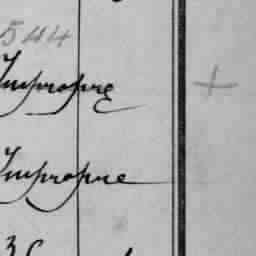 544
Impropre +
Impropre